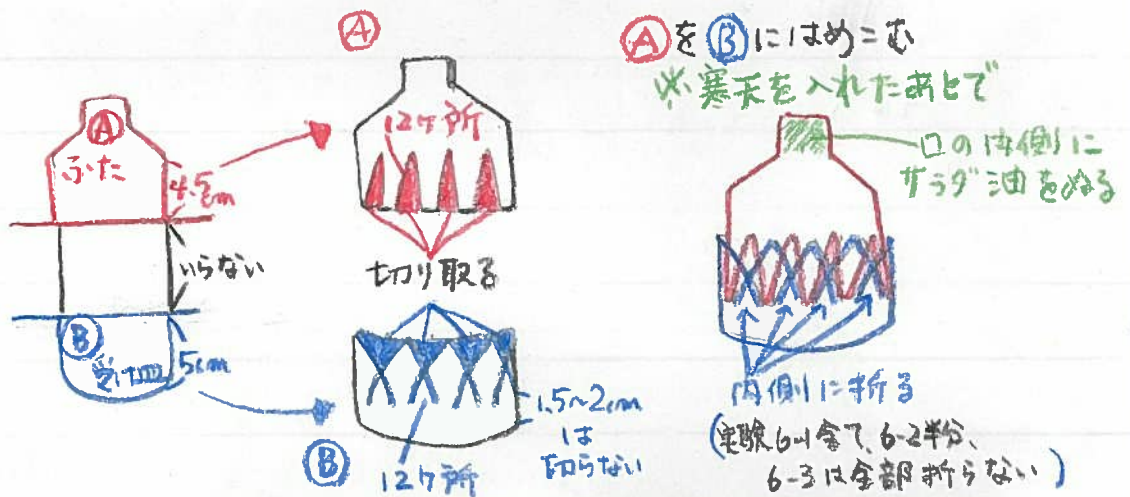 Ⓐ
ふた
4.5cm
いらない
Ⓑ
受け皿
5cm
Ⓐ
12ヶ所
切り取る
1.5~2cm
は
切らない
Ⓑ
12ヶ所
ⒶをⒷにはめこむ
※寒天を入れたあとで
口の内側に
サラダ油をぬる
内側に折る
(実験6-1全て、6-2半分、
6-3は全部折らない)